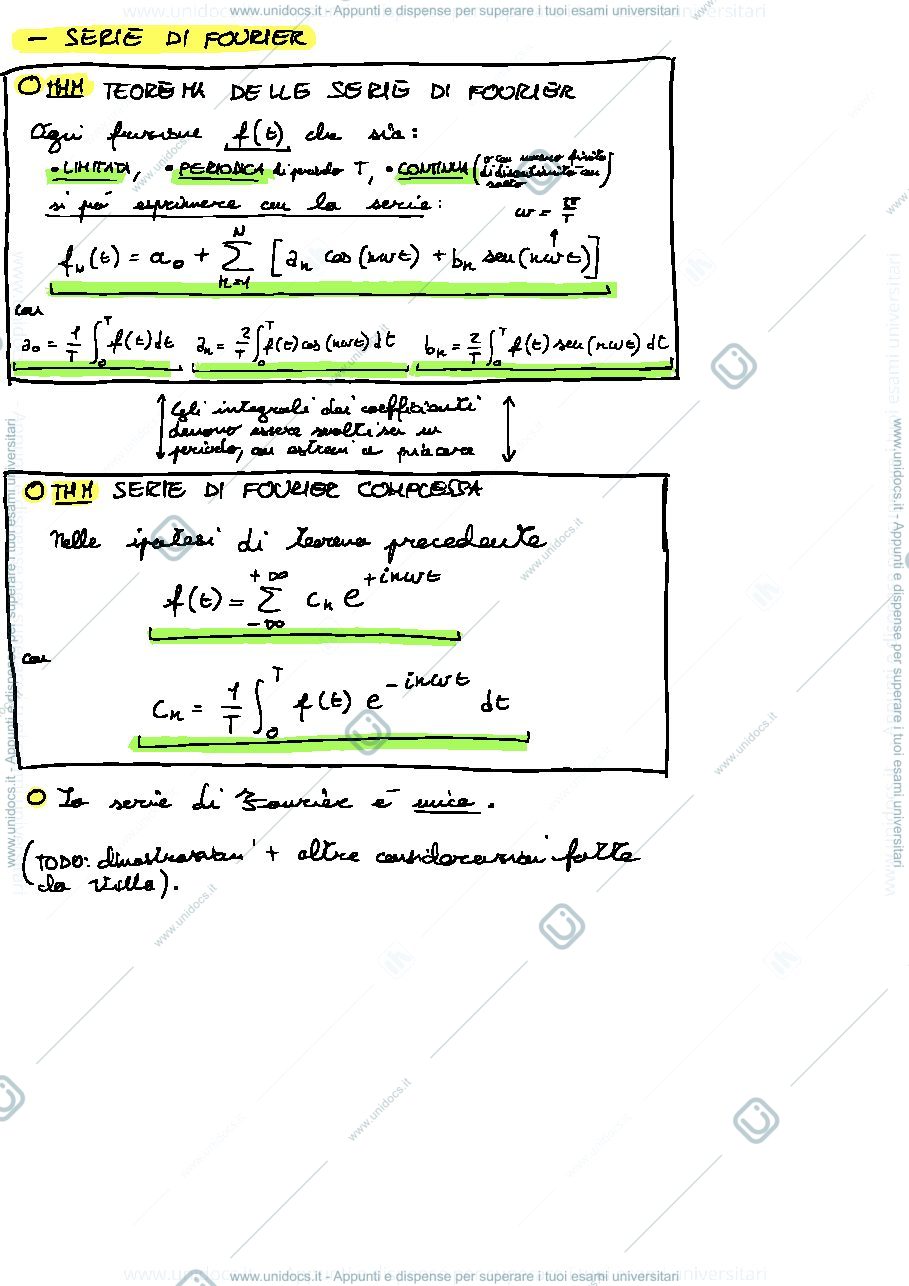 www.unidocs.it - Appunti e dispense per superare i tuoi esami universitari
- SERIE DI FOURIER
THM TEOREMA DELLE SERIE DI FOURIER
Ogni funzione f(t) che sia:
• LIMITATA, • PERIODICA di periodo T, • CONTINUA (o con numero finito di discontinuità con salto)
si può esprimere con la serie: ω = 2π/T
f_N(t) = a_0 + Σ_{n=1}^{N} [a_n cos(nωt) + b_n sen(nωt)]
con
a_0 = 1/T ∫_0^T f(t)dt a_n = 2/T ∫_0^T f(t) cos(nωt) dt b_n = 2/T ∫_0^T f(t) sen(nωt) dt
↕ Gli integrali dei coefficienti ↕
devono essere svolti su un
periodo, con estremi a piacere
THM SERIE DI FOURIER COMPLESSA
Nelle ipotesi di teorema precedente
f(t) = Σ_{-∞}^{+∞} c_n e^{+inωt}
con
c_n = 1/T ∫_0^T f(t) e^{-inωt} dt
La serie di Fourier è unica.
(TODO: dimostrazioni + altre considerazioni fatte
da Villa).
www.unidocs.it - Appunti e dispense per superare i tuoi esami universitari